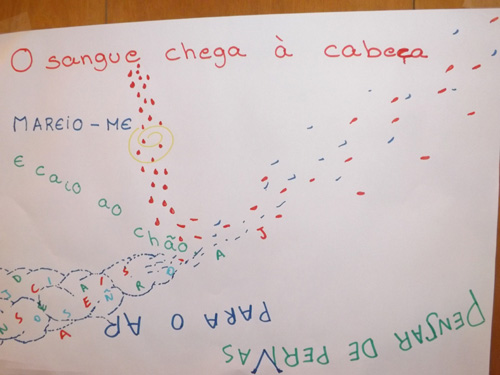 O sangue chega à cabeça
MAREIO-ME
E caio ao
chão
PENSAR DE PERNAS
PARA O AR